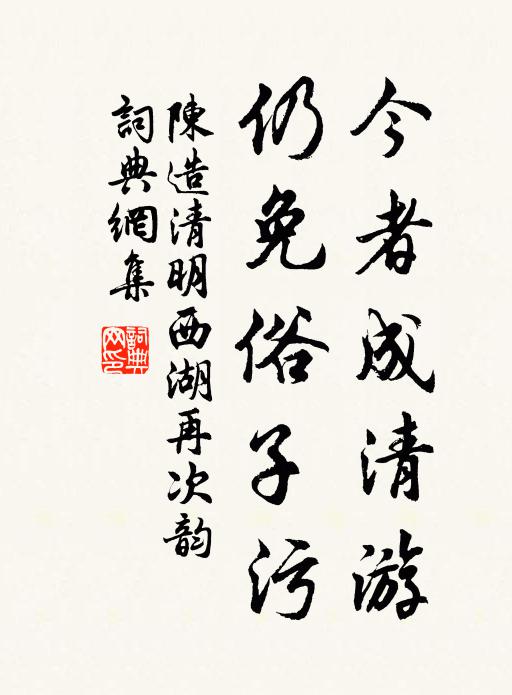 今者成清游
仍免俗子污
陳造清明西湖再次韵
詞典網集
詞典網印